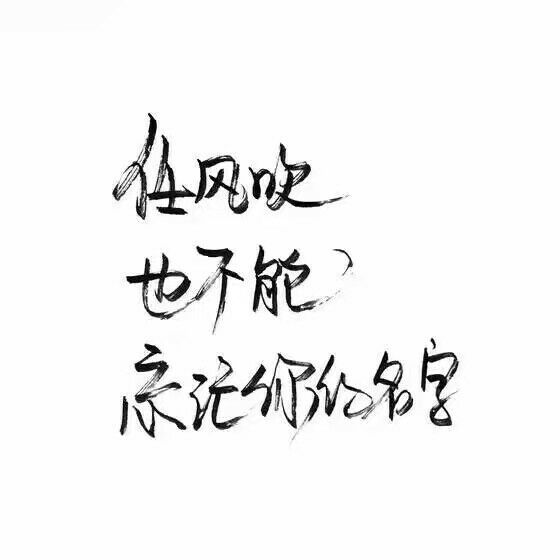 任风吹
也不能
忘你的名字